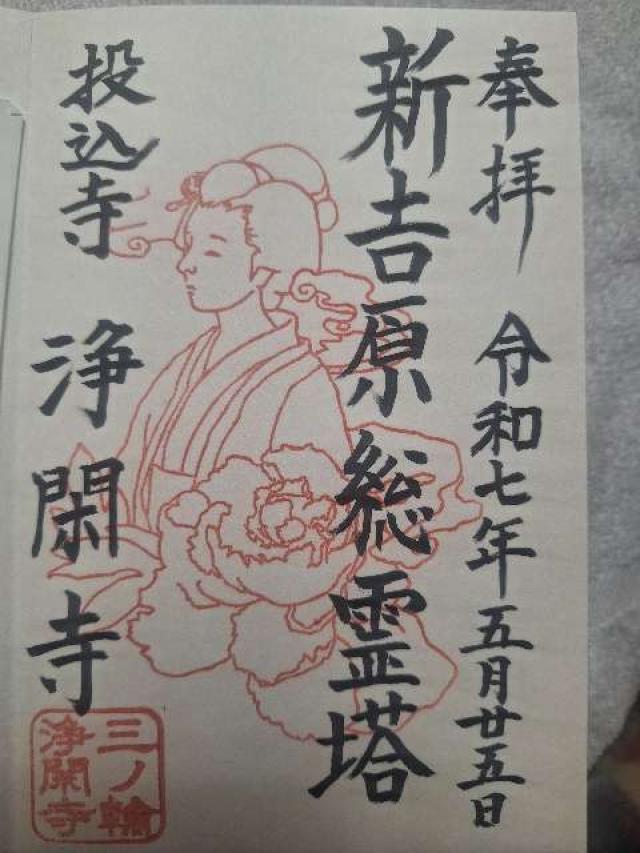 奉拝 令和七年五月廿五日
新吉原総霊塔
投込寺 浄閑寺
三ノ輪
浄閑寺